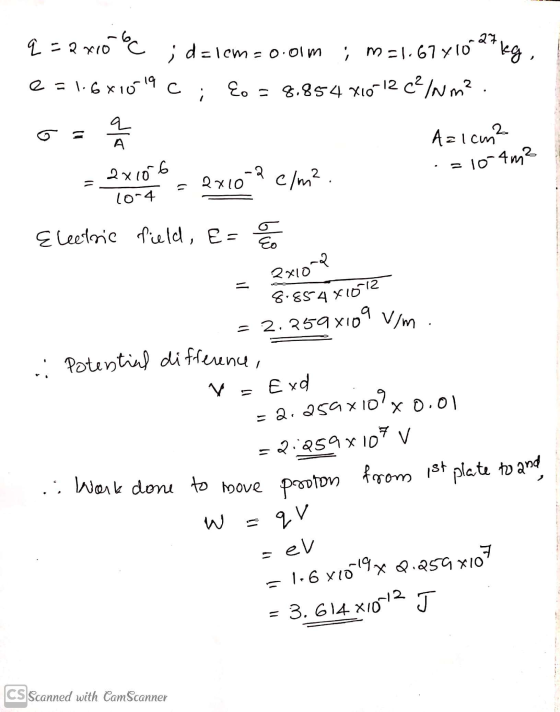 q = 2 x10^-6 C ; d = 1cm = 0.01m ; m = 1.67 x 10^-27 kg,
e = 1.6 x 10^-19 C ; ε0 = 8.854 x10^-12 C²/Nm².
σ = q/A
A = 1 cm²
= 10^-4 m²
= 2x10^-6/10^-4 = 2x10^-2 C/m².
Electric field, E = σ/ε0
= 2x10^-2/8.854 x 10^-12
= 2.259x10^9 V/m.
∴ Potential difference,
V = E x d
= 2.259x10^9 x 0.01
= 2.259 x 10^7 V
∴ Work done to move proton from 1st plate to 2nd,
W = qV
= eV
= 1.6 x 10^-19 x 2.259 x10^7
= 3.614 x10^-12 J
CS Scanned with CamScanner